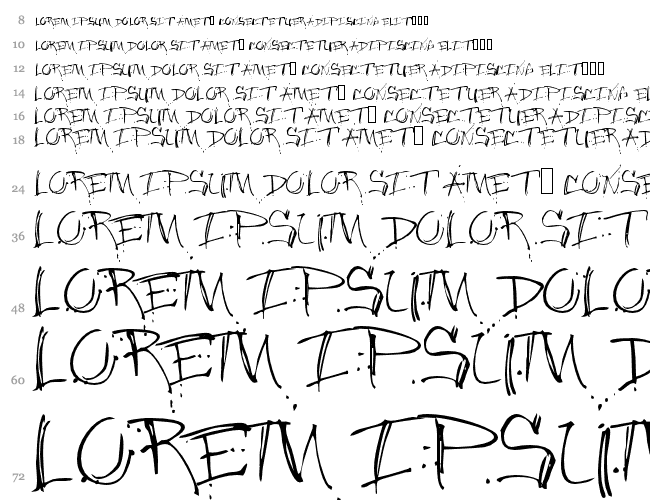 8 LOREM IPSUM DOLOR SIT AMET▯ CONSECTETUER ADIPISCING ELIT▯▯▯
10 LOREM IPSUM DOLOR SIT AMET▯ CONSECTETUER ADIPISCING ELIT▯▯▯
12 LOREM IPSUM DOLOR SIT AMET▯ CONSECTETUER ADIPISCING ELIT▯▯▯
14 LOREM IPSUM DOLOR SIT AMET▯ CONSECTETUER ADIPISCING EL
16 LOREM IPSUM DOLOR SIT AMET▯ CONSECTETUER ADIPISCING
18 LOREM IPSUM DOLOR SIT AMET▯ CONSECTETUER AD
24 LOREM IPSUM DOLOR SIT AMET▯ CONSE
36 LOREM IPSUM DOLOR SIT
48 LOREM IPSUM DOLO
60 LOREM IPSUM D
72 LOREM IPSUM